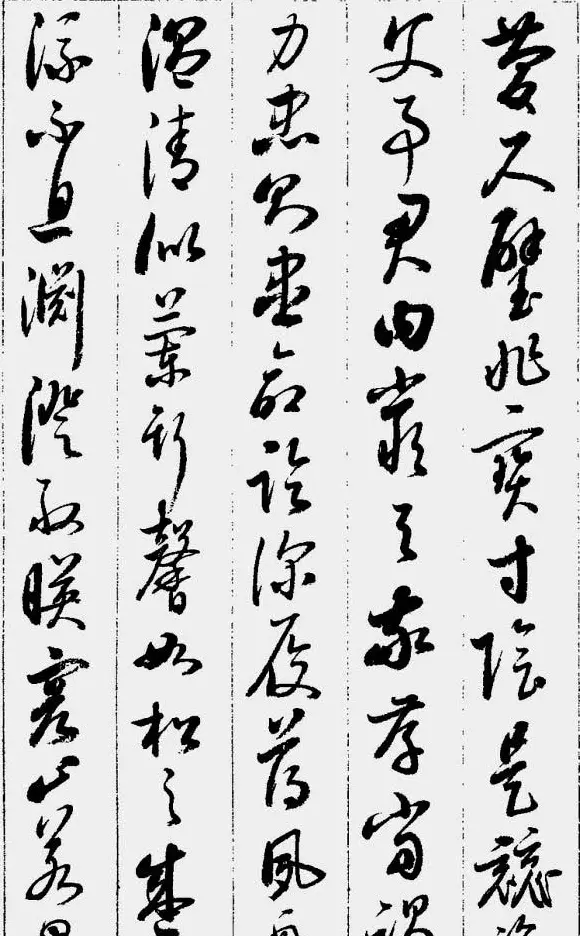 慶尺璧非寶寸陰是競
父事君曰嚴與敬孝當
力忠則盡命臨深履薄夙
溫清似蘭斯馨如松之盛
流不息淵澄取暎容止若